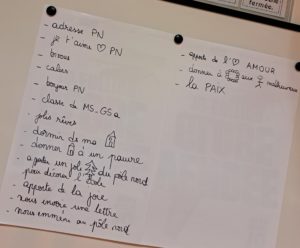 fermée.
- adresse PN
- je t'aime ♡ PN
- bisous
- calins
- bonjour PN
- classe de MS-GSa
- jolis rêves
- dormir de ma
- donner à un pauvre
- acheter un joli du pôle nord
pour décorer l'école
- apporte de la joie
- nous envoie une lettre
- nous emmène au pôle nord
- apporte de l'♡ AMOUR
- donner à aux malheureux
- la PAIX